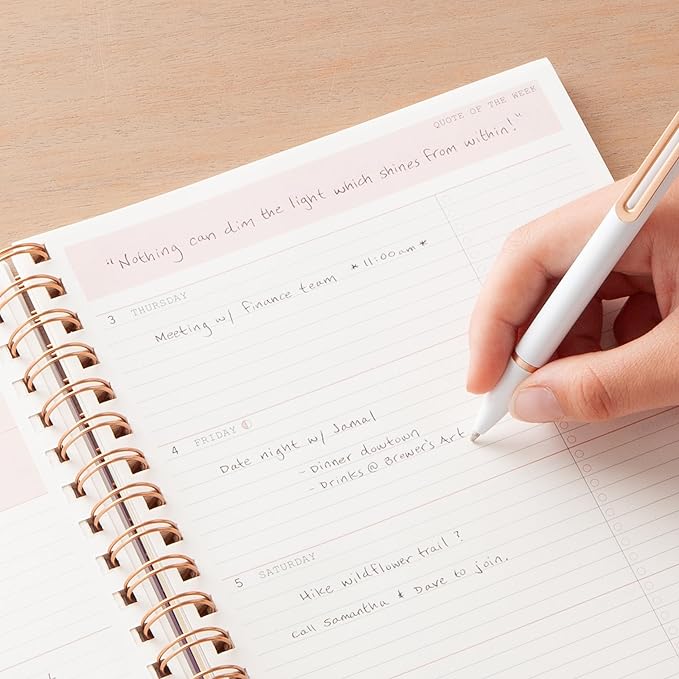 QUOTE OF THE WEEK
"Nothing can dim the light which shines from within!"
3 THURSDAY
Meeting w/ finance team *11:00am*
4 FRIDAY
Date night w/ Jamal
- Dinner dowtown
- Drinks @ Brewer's Art
5 SATURDAY
Hike wildflower trail?
Call Samantha & Dave to join.